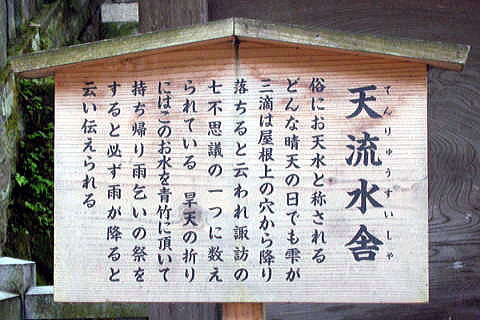 天流水舎
てんりゅうすいしゃ
俗にお天水と称される
どんな晴天の日でも雫が
三滴は屋根上の穴から降り
落ちると云われ諏訪の
七不思議の一つに数え
られている　旱天の折り
にはこのお水を青竹に頂いて
持ち帰り雨乞いの祭を
すると必ず雨が降ると
云い伝えられる